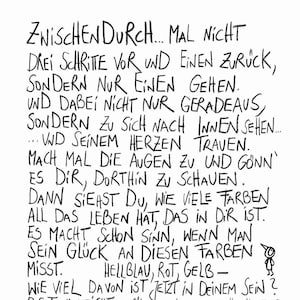 ZWISCHENDURCH... MAL NICHT
DREI SCHRITTE VOR UND EINEN ZURÜCK,
SONDERN NUR EINEN GEHEN.
UND DABEI NICHT NUR GERADEAUS,
SONDERN ZU SICH NACH INNEN SEHEN...
... UND SEINEM HERZEN TRAUEN.
MACH MAL DIE AUGEN ZU UND GÖNN'
ES DIR, DORTHIN ZU SCHAUEN.
DANN SIEHST DU, WIE VIELE FARBEN
ALL DAS LEBEN HAT, DAS IN DIR IST.
ES MACHT SCHON SINN, WENN MAN
SEIN GLÜCK AN DIESEN FARBEN
MISST. HELLBLAU, ROT, GELB –
WIE VIEL DAVON IST JETZT IN DEINEM SEIN?